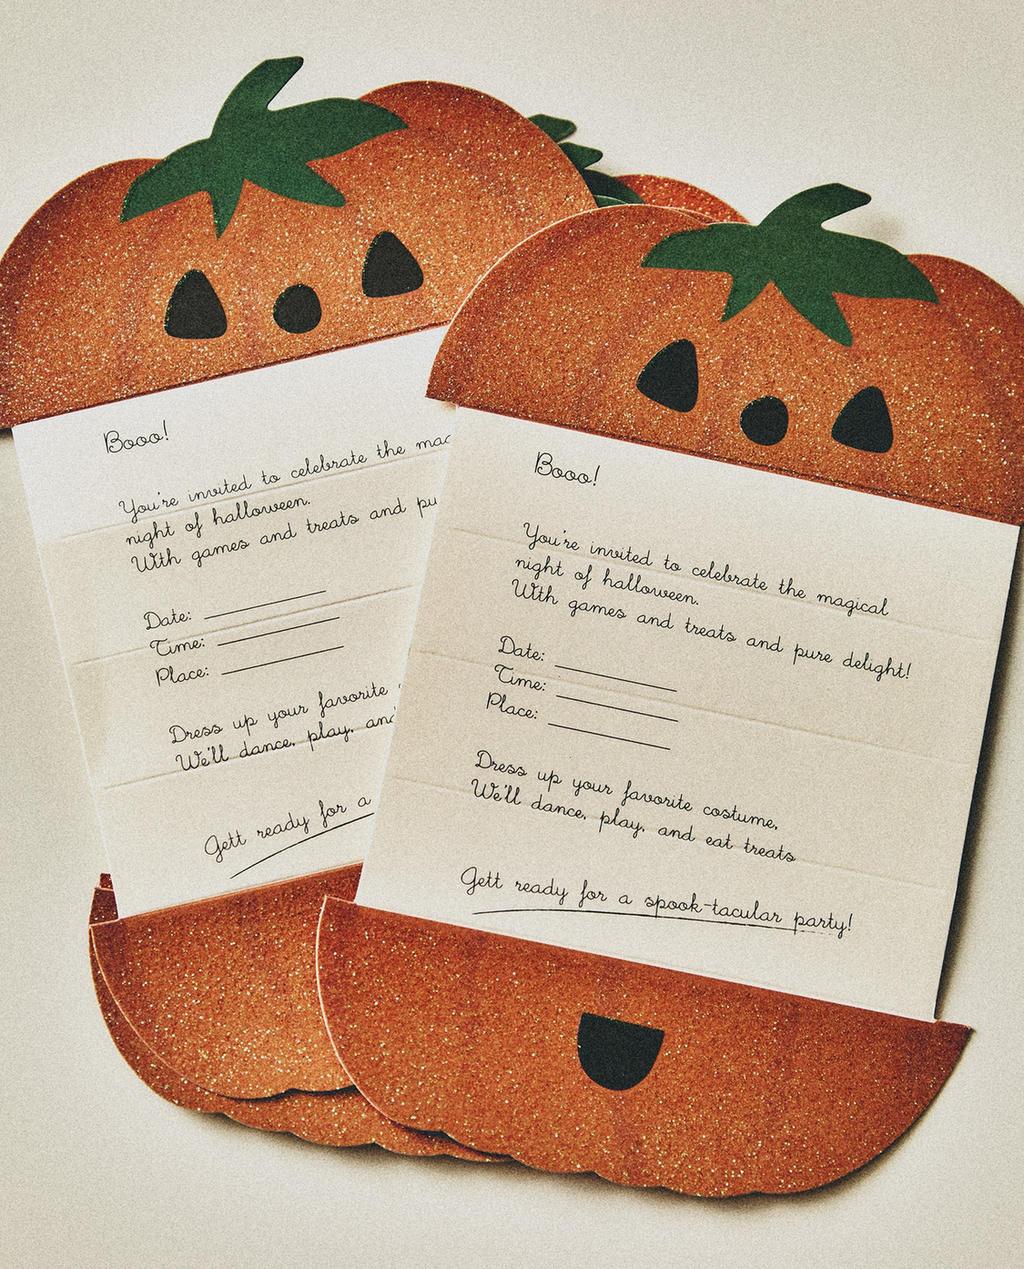 Booo!
You're invited to celebrate the
night of halloween.
With games and treats and
Date:
Time:
Place:
Dress up your favorite
We'll dance, play, and
Gett ready for a
Booo!
You're invited to celebrate the magical
night of halloween.
With games and treats and pure delight!
Date:
Time:
Place:
Dress up your favorite costume,
We'll dance, play, and eat treats
Gett ready for a spook-tacular party!